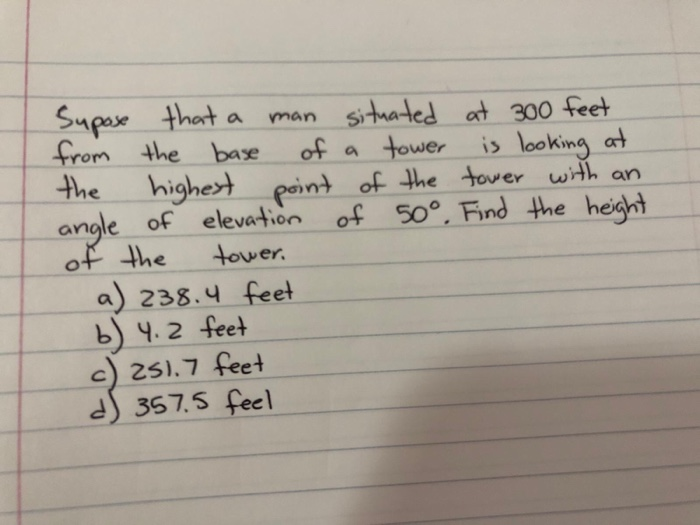 Supose that a man situated at 300 feet
from the base of a tower is looking at
the highest point of the tower with an
angle of elevation of 50°. Find the height
of the tower.
a) 238.4 feet
b) 4.2 feet
c) 251.7 feet
d) 357.5 feel